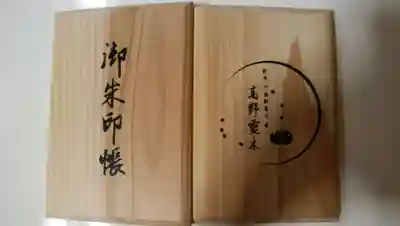 御朱印帳
高野霊木